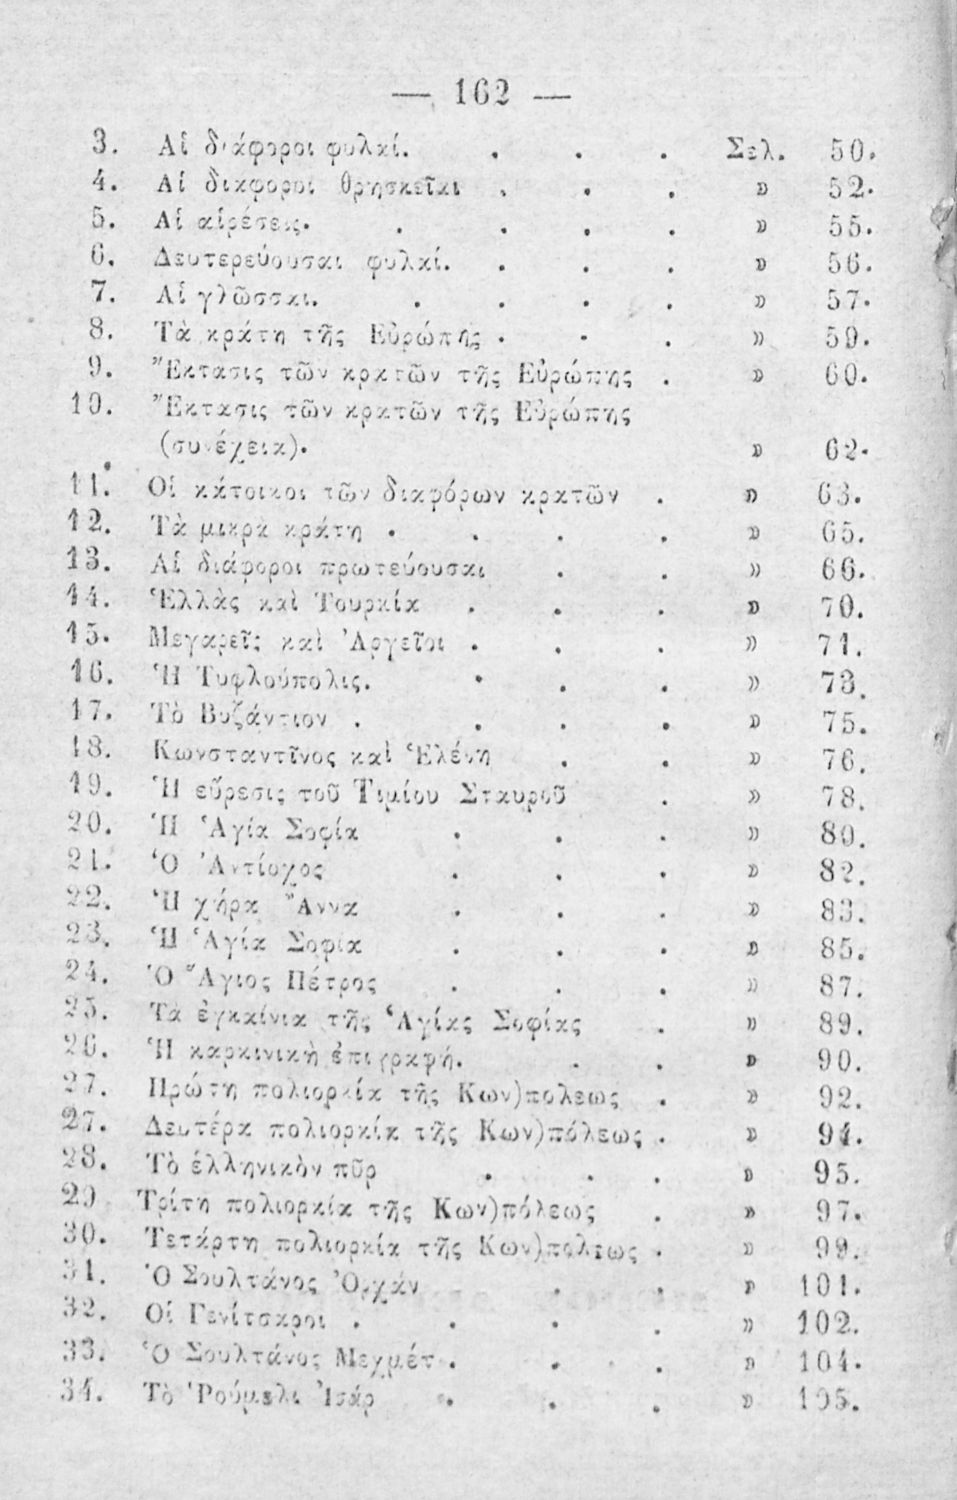 — 162 —
3. Αἱ διάφοροι φυλαί. . . . Σελ. 50.
4. Αἱ διαφοροι θρησκεῖαι . . . » 52.
5. Αἱ αἱρέσεις. . . . . » 55.
6. Δευτερεύουσαι φυλαί. . . . » 56.
7. Αἱ γλῶσσαι. . . . . » 57.
8. Τὰ κράτη τῆς Εὐρώπης . . . » 59.
9. Ἔκτασις τῶν κρατῶν τῆς Εὐρώπης . » 60.
10. Ἔκτασις τῶν κρατῶν τῆς Εὐρώπης
(συνέχεια). » 62.
11. Οἱ κάτοικοι τῶν διαφόρων κρατῶν . » 63.
12. Τὰ μικρὰ κράτη . . . . » 65.
13. Αἱ διάφοροι πρωτεύουσαι . . » 66.
14. Ἑλλὰς καὶ Τουρκία . . . » 70.
15. Μεγαρεῖς καὶ Ἀργεῖοι . . . » 71.
16. Ἡ Τυφλούπολις. . . . » 73.
17. Τὸ Βυζάντιον . . . . » 75.
18. Κωνσταντῖνος καὶ Ἑλένη . . » 76.
19. Ἡ εὕρεσις τοῦ Τιμίου Σταυροῦ . » 78.
20. Ἡ Ἁγία Σοφία . . . » 80.
21. Ὁ Ἀντίοχος . . . » 82.
22. Ἡ χήρα Ἄννα . . . » 83.
23. Ἡ Ἁγία Σοφία . . . » 85.
24. Ὁ Ἅγιος Πέτρος . . . » 87.
25. Τὰ ἐγκαίνια τῆς Ἁγίας Σοφίας . » 89.
26. Ἡ καρκινικὴ ἐπιγραφή. . . » 90.
27. Πρώτη πολιορκία τῆς Κων)πολεως . » 92.
27. Δευτέρα πολιορκία τῆς Κων)πόλεως . » 94.
28. Τὸ ἑλληνικὸν πῦρ . . . » 95.
29 Τρίτη πολιορκία τῆς Κων)πόλεως . » 97.
30. Τετάρτη πολιορκία τῆς Κων)πολεως . » 99.
31. Ὁ Σουλτάνος Ὀρχάν . . . » 101.
32. Οἱ Γενίτσαροι . . . . » 102.
33. Ὁ Σουλτάνος Μεχμέτ . . . » 104.
34. Τὸ Ῥούμελι Ἰσάρ . . . » 105.